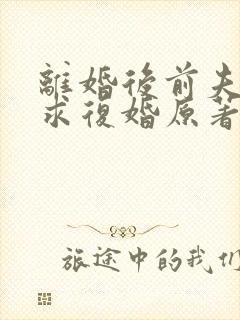 離婚後前夫
求復婚原著
旅途中的我们